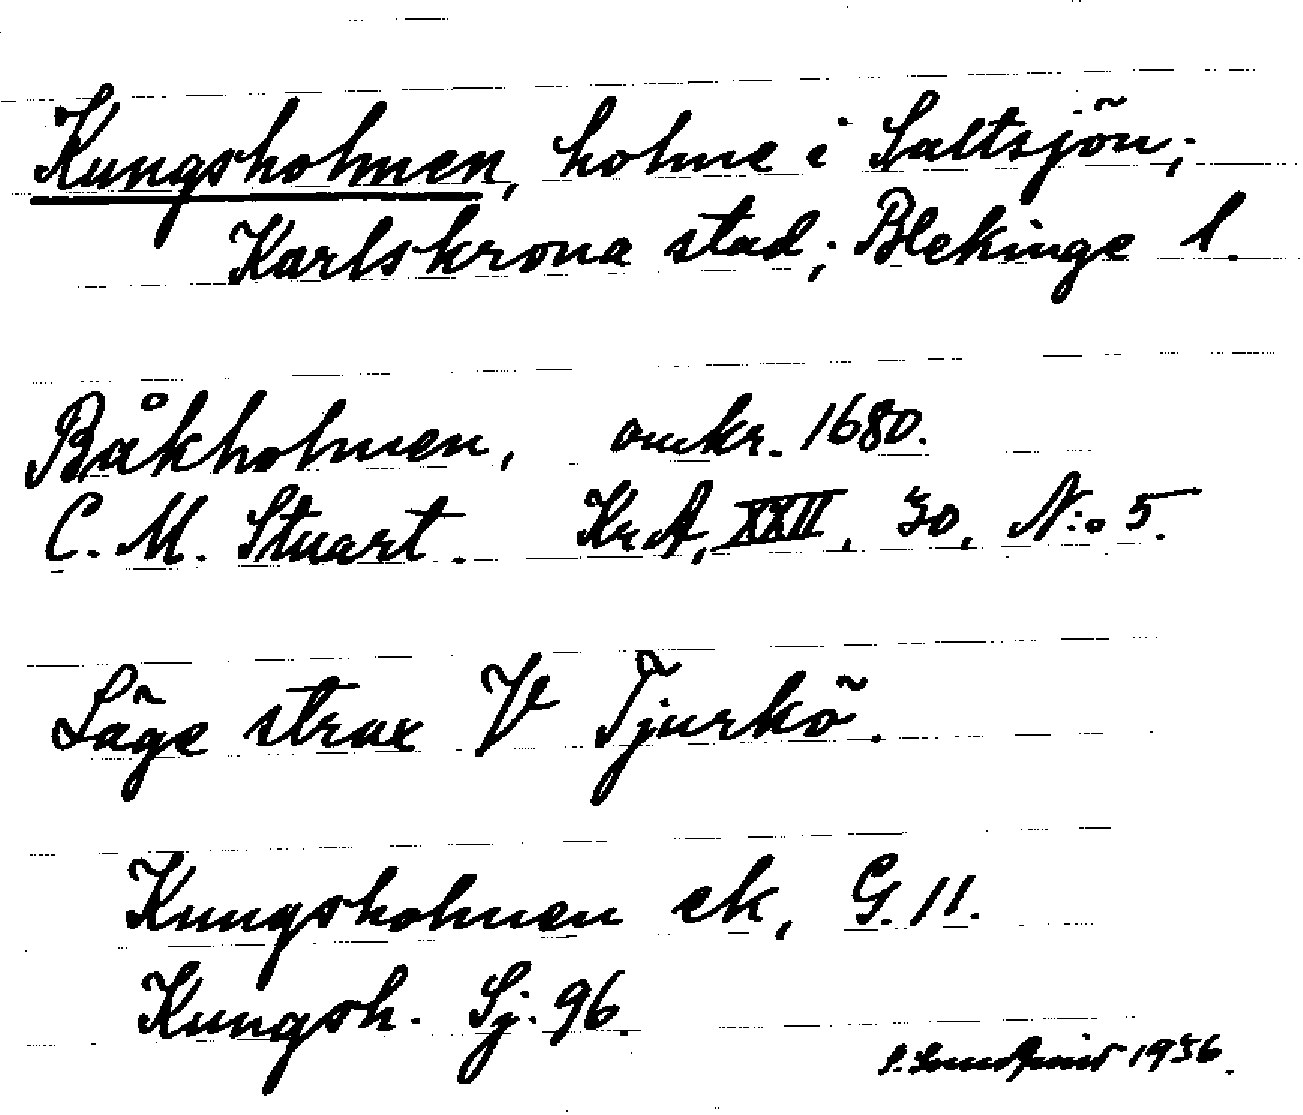 Kungsholmen, holme i Saltsjön;
Karlskrona stad; Blekinge l.
Båkholmen, omkr. 1680.
C. M. Stuart. Kr.A, XXII, 30, N:o 5.
Läge strax V Tjurkö.
Kungsholmen ek, G. 11.
Kungsh. Sj. 96.
1956.